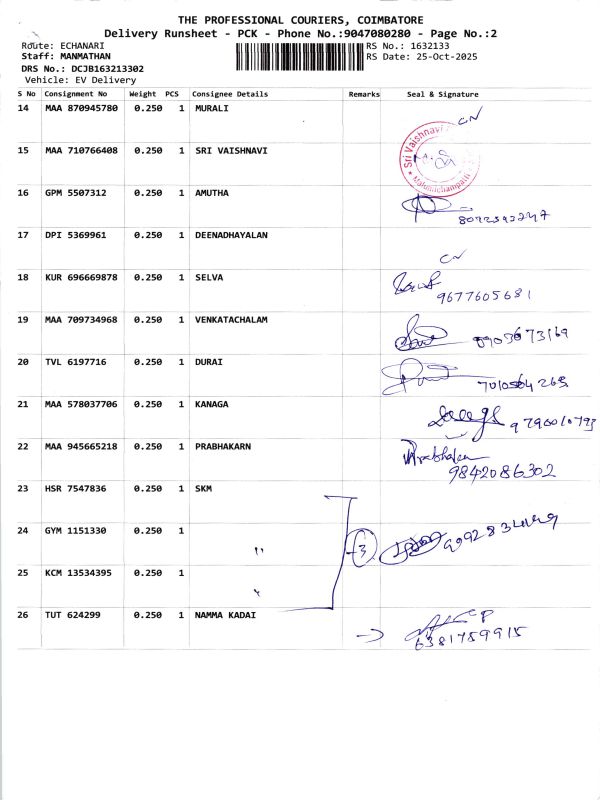 THE PROFESSIONAL COURIERS, COIMBATORE
Delivery Runsheet - PCK - Phone No.:9047080280 - Page No.:2
Route: ECHANARI
RS No.: 1632133
Staff: MANMATHAN
RS Date: 25-Oct-2025
DRS No.: DCJB163213302
Vehicle: EV Delivery
S No Consignment No Weight PCS Consignee Details Remarks Seal & Signature
14 MAA 870945780 0.250 1 MURALI CN
15 MAA 710766408 0.250 1 SRI VAISHNAVI Sri Vaishnavi
16 GPM 5507312 0.250 1 AMUTHA
17 DPI 5369961 0.250 1 DEENADHAYALAN CN
18 KUR 696669878 0.250 1 SELVA 9677605681
19 MAA 709734968 0.250 1 VENKATACHALAM
20 TVL 6197716 0.250 1 DURAI
21 MAA 578037706 0.250 1 KANAGA
22 MAA 945665218 0.250 1 PRABHAKARN Prabhakar 9842086302
23 HSR 7547836 0.250 1 SKM
24 GYM 1151330 0.250 1 " 3
25 KCM 13534395 0.250 1 "
26 TUT 624299 0.250 1 NAMMA KADAI 6381759915